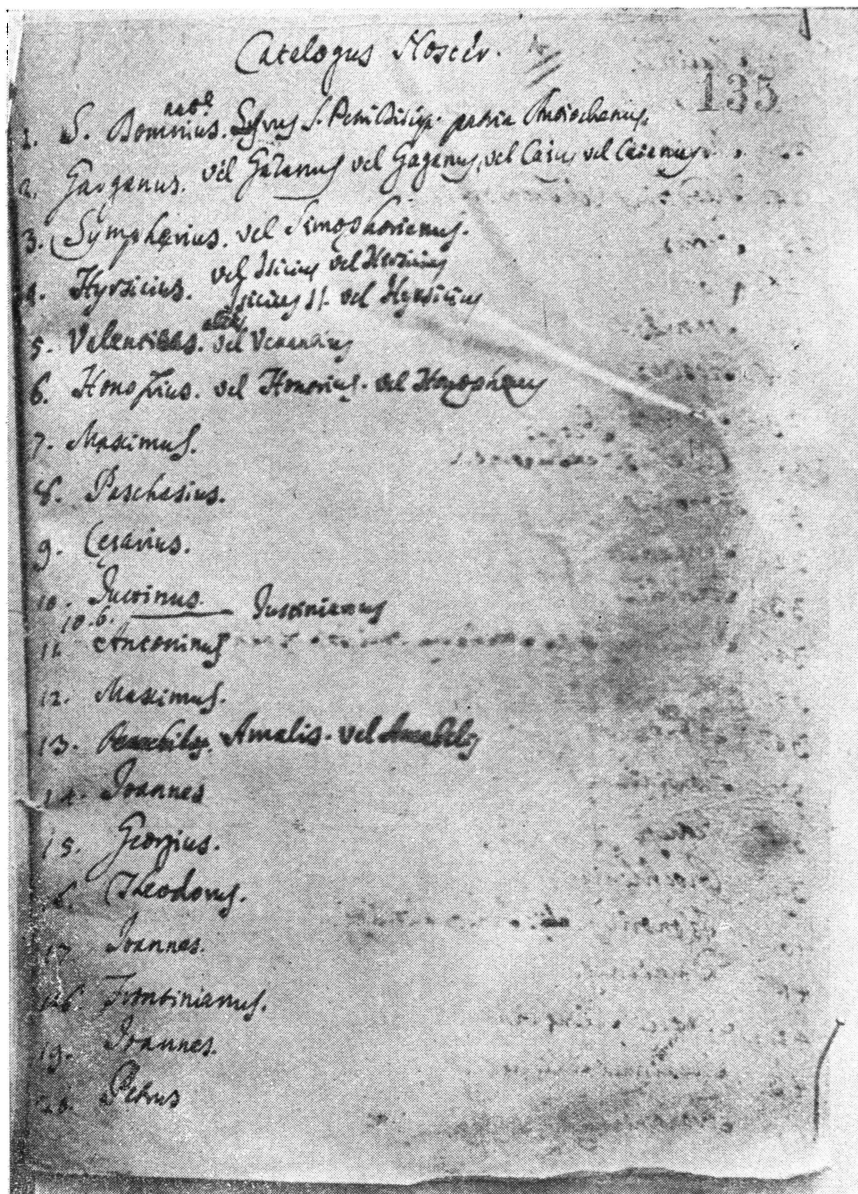 Catalogus Noster.
135
1. S. Domnius. natõe Syrus S. Petri Discip. patria Antiochenus.
2. Garganus. vel Galanus vel Gaganus, vel Caius vel Caianus.
3. Sympherius. vel Simphorianus.
4. Hyrsicius. vel Isicius vel Hersicius
Isicius II. vel Hyrsicius
5. Valentinus. vel Venantius
6. Honofrius. vel Honorius. vel Honophrius
7. Maximus.
8. Paschasius.
9. Cęsarius.
10. Jucrinus. Justinianus
10.6.
11. Antoninus
12. Maximus.
13. Amalis. vel Amabilis
14. Joannes
15. Georgius.
16. Theodorus.
17. Joannes.
18. Frontinianus.
19. Joannes.
20. Petrus